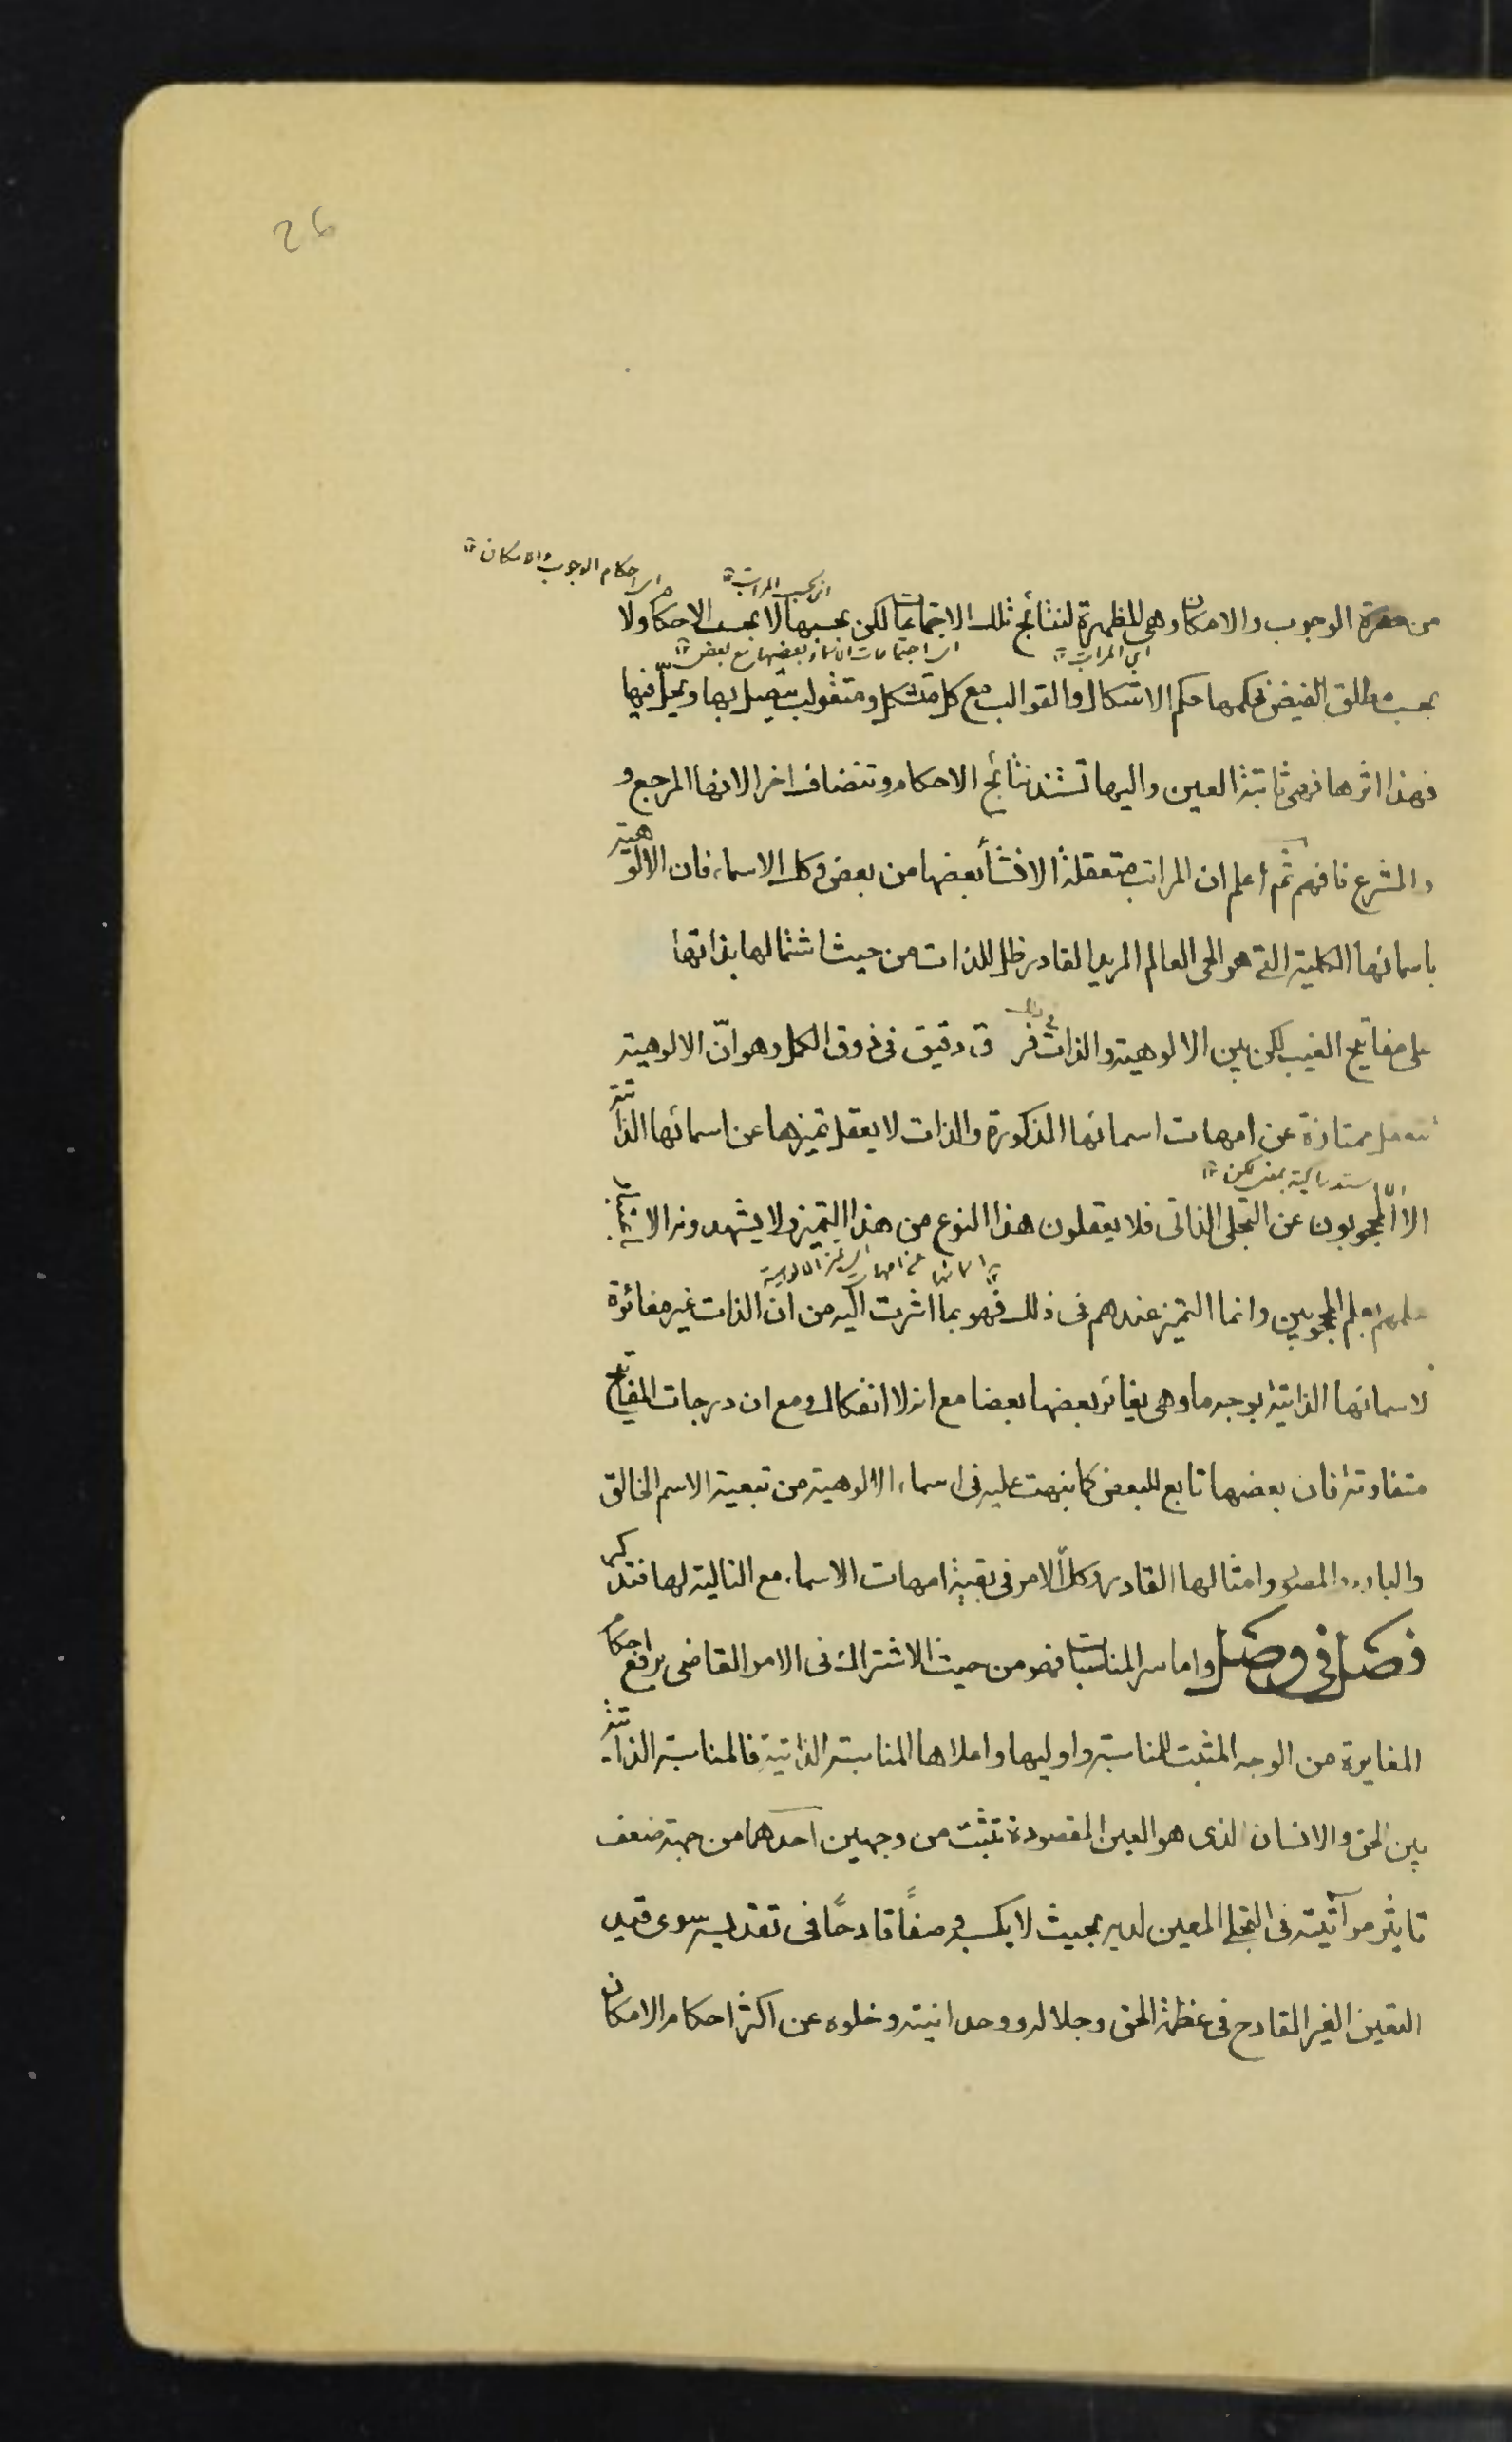 26
اي احكام الوجوب والامكان
اي بحسب المراتب
من حضرة الوجوب والامكان وهي المظهرة لنتائج تلك الاجتماعات لكن بحسبها لا بحسب الاحكام ولا
اي المراتب
بحسب مطلق الفيض فحكمها حكم الاشكال والقوالب مع كل متشكل ومتقولب يتصل بها ويحلّ فيها
فهذا اثرها فهي ثابتة العين واليها تستند نتائج الاحكام وتنضاف اخرا لانها المرجع و
والمشرع فافهم ثم اعلم ان المراتب متعقلة الانشأ بعضها من بعض وكل الاسماء فان الالوهية
باسمائها الكلية التي هو الحي العالم المريد القادر ظل للذات من حيث اشتمالها بذاتها
على مفاتيح الغيب لكن بين الالوهية والذات في ذلك فرق دقيق في ذوق الكمل وهو انّ الالوهية
تتعقل ممتازة عن امهات اسمائها المذكورة والذات لا يعقل تميزها عن اسمائها الذاتية
استدراكية بمعنى لكن
الا المحجوبون عن التجلي الذاتي فلا يعقلون هذا النوع من هذا التميز ولا يشهدونه
علمهم بعلم المحجوبين وانما التميز عندهم في ذلك فهو بما اشرت اليه من ان الذات غير مغائرة
لاسمائها الذاتية بوجه ما وهي يغائر بعضها بعضا مع انه لا انفكاك ومع ان درجات المفاتيح
متفاوتة فان بعضها تابع للبعض كما نبهت عليه في اسماء الالوهية من تبعية الاسم الخالق
والبارء والمصور وامثالها القادر وكل الامر في بقية امهات الاسماء مع التالية لها فتذكر
فصل في وصل واما سر المناسبات فهو من حيث الاشتراك في الامر القاضي برفع احكام
المغايرة من الوجه المثبت للمناسبة واوليها واعلاها المناسبة الذاتية فالمناسبة الذاتية
بين الحق والانسان الذي هو العين المقصودة تثبت من وجهين احدهما من جهة ضعف
تاثير مرآتيته في التجلي المعين لديه بحيث لا يكسبه وصفًا قادحًا في تقديسه سوى قيد
التعين الغير القادح في عظمة الحق وجلاله ووحدانيته وخلوه عن اكثر احكام الامكان